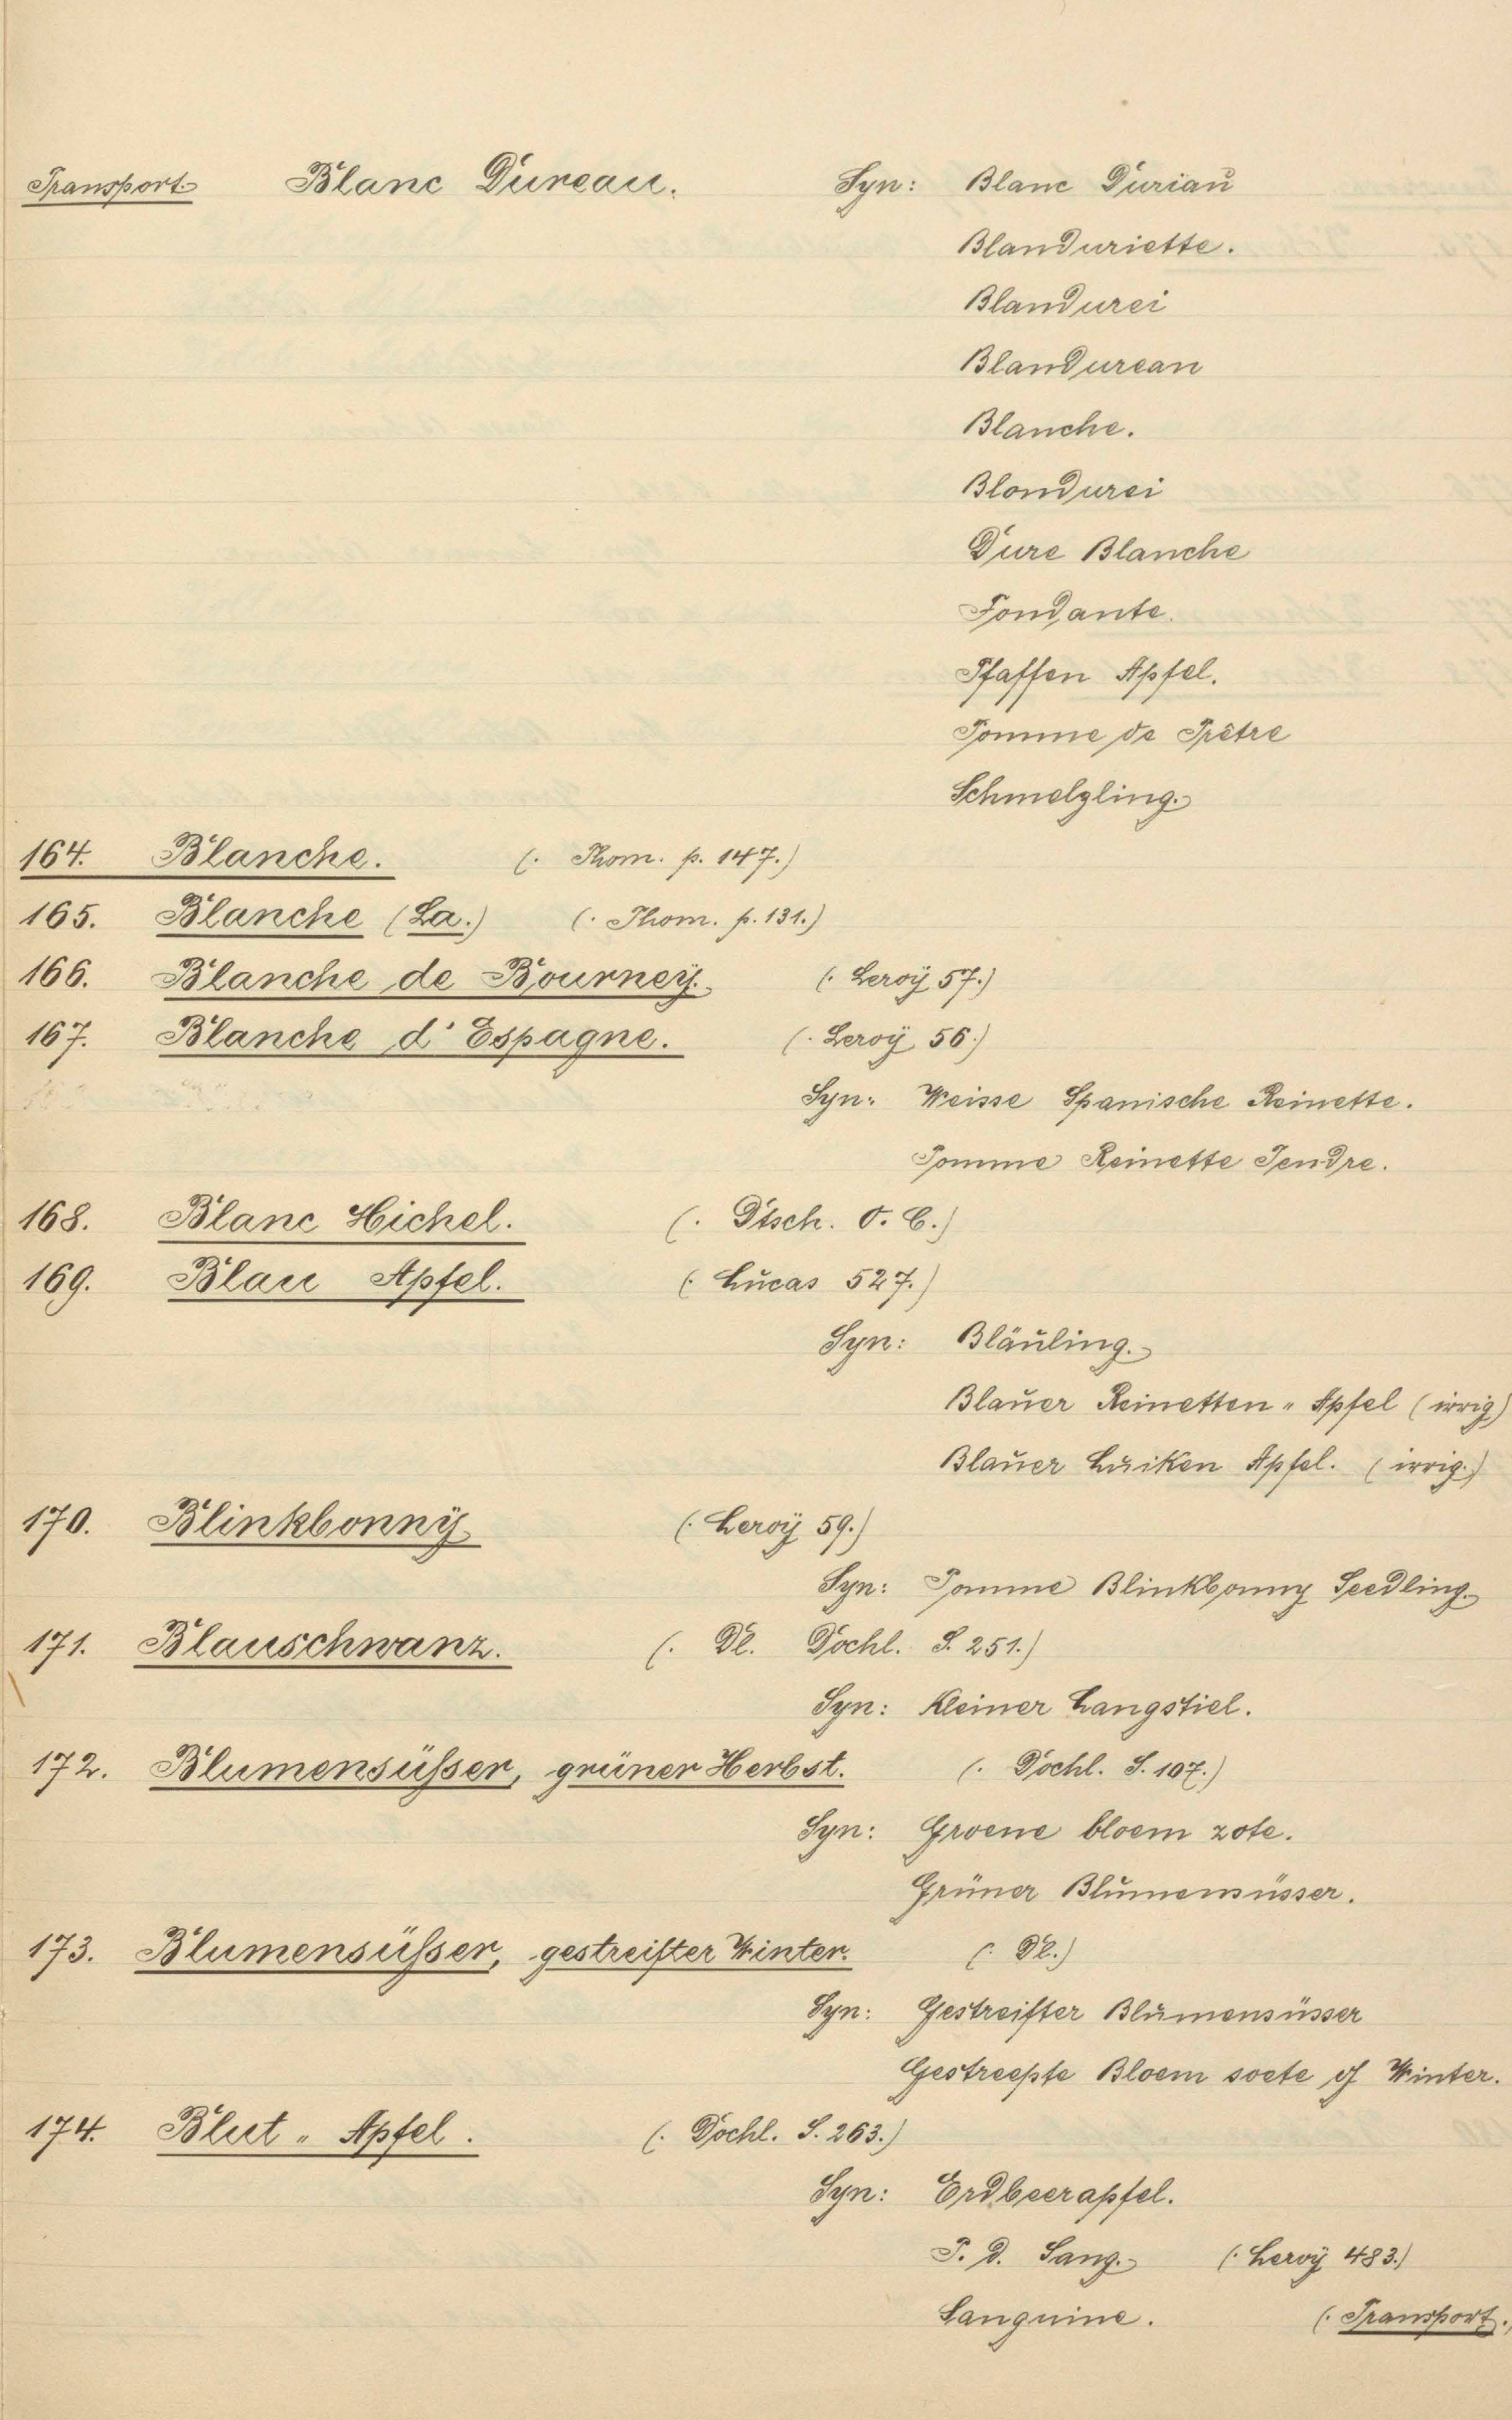 Transport. Blanc Dureau. Syn: Blanc Duriau
Blanduriette.
Blandurei
Blandurean
Blanche.
Blondurei
Dure Blanche
Fondante.
Pfaffen Apfel.
Pomme de Prêtre
Schmelzling.
164. Blanche. (: Thom. p. 147.)
165. Blanche (La.) (: Thom. p. 131.)
166. Blanche de Bourney. (: Leroÿ 57.)
167. Blanche d'Espagne. (: Leroÿ 56.)
Syn: Weisse Spanische Reinette.
Pomme Reinette Tendre.
168. Blanc Hichel. (: Dtsch. O. C.)
169. Blau Apfel. (: Lucas 527.)
Syn: Bläuling.
Blauer Reinetten „ Apfel (irrig)
Blauer Luiken Apfel. (irrig.)
170. Blinkbonnÿ. (: Leroÿ 59.)
Syn: Pomme Blinkbonny Seedling.
171. Blauschwanz. (: Dl. Dochl. S. 251.)
Syn: Kleiner Langstiel.
172. Blumensüßer, grüner Herbst. (: Dochl. S. 107.)
Syn: Groene bloem zote.
Grüner Blumensüsser.
173. Blumensüßer, gestreifter Winter. (: Dl.)
Syn: Gestreifter Blumensüsser
Gestreepte Bloem soete of Winter.
174. Blut „ Apfel. (: Dochl. S. 263.)
Syn: Erdbeerapfel.
P. d. Sang. (: Leroÿ 483.)
Sanguine. (: Transport.